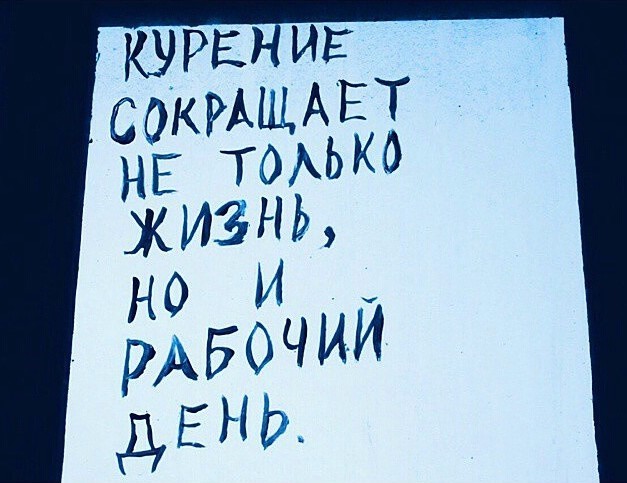 КУРЕНИЕ
СОКРАЩАЕТ
НЕ ТОЛЬКО
ЖИЗНЬ,
НО И
РАБОЧИЙ
ДЕНЬ.